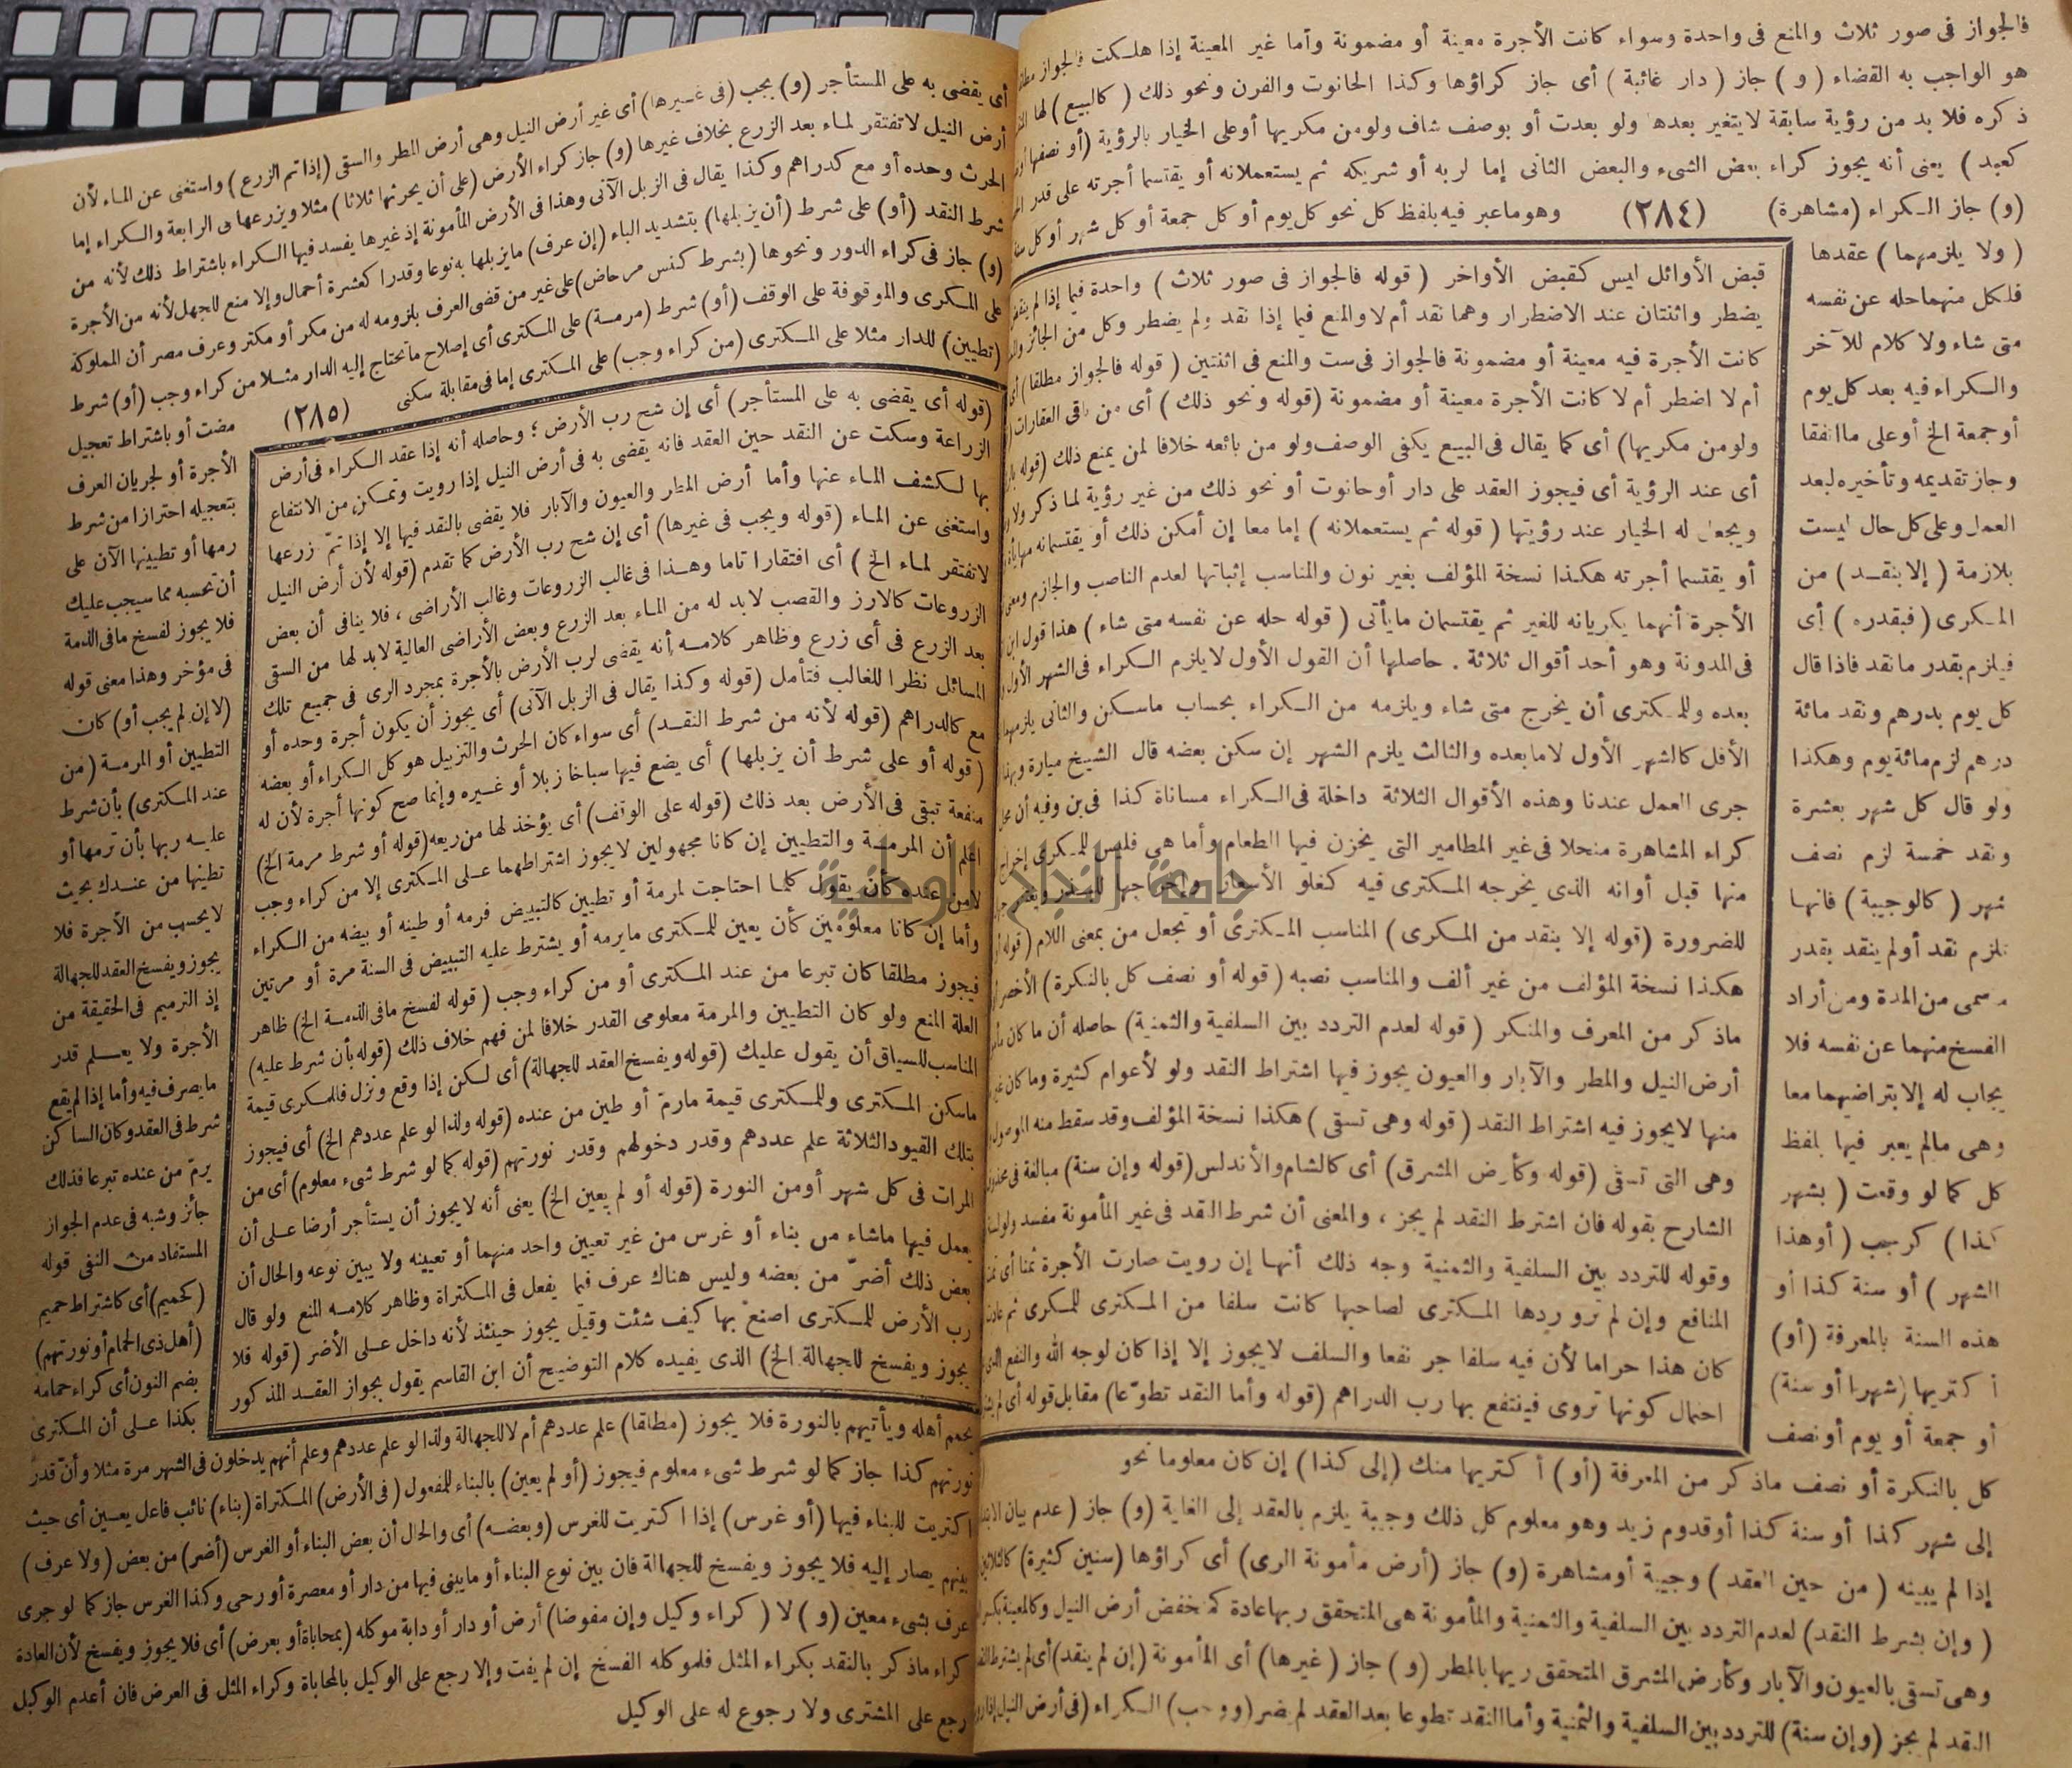 فالجواز فى صور ثلاث والمنع فى واحدة وسواء كانت الأجرة معينة أو مضمونة وأما غير المعينة إذا هلكت فالجواز
هو الواجب به القضاء (و) جاز (دار غائبة) أى جاز كراؤها وكذا الحانوت والفرن ونحو ذلك (كالبيع) لها
ذكره فلا بد من رؤية سابقة لا يتغير بعدها ولو بعدت أو بوصف شاف ولو من مكريها أو على الخيار بالرؤية (أو نصفها أو
كعبد) يعنى أنه يجوز كراء بعض الشىء والبعض الثانى إما لربه أو شريكه ثم يستعملانه أو يقتسما أجرته على قدر
(و) جاز الكراء (مشاهرة) (٢٨٤) وهو ما عبر فيه بلفظ كل نحو كل يوم أو كل جمعة أو كل شهر أو كل
(ولا يلزمهما) عقدها
فلكل منهما حله عن نفسه
متى شاء ولا كلام للآخر
والكراء فيه بعد كل يوم
أو جمعة الخ أو على ما اتفقا
وجاز تقديمه وتأخيره لبعد
العمل وعلى كل حال ليست
بلازمة (إلا بنقد) من
المكرى (فبقدره) أى
فيلزم بقدر ما نقد فاذا قال
كل يوم بدرهم ونقد مائة
درهم لزم مائة يوم وهكذا
ولو قال كل شهر بعشرة
ونقد خمسة لزم نصف
شهر (كالوجيبة) فانها
تلزم نقد أو لم ينقد بقدر
مسمى من المدة ومن أراد
الفسخ منهما عن نفسه فلا
يجاب له إلا بتراضيهما معا
وهى ما لم يعبر فيها بلفظ
كل كما لو وقعت (بشهر
كذا) كرجب (أو هذا
الشهر) أو سنة كذا أو
هذه السنة بالمعرفة (أو)
أكتريها (شهرا أو سنة)
أو جمعة أو يوم أو نصف
قبض الأوائل ليس كقبض الأواخر (قوله فالجواز فى صور ثلاث) واحدة فيما إذا لم
يضطر واثنتان عند الاضطرار وهما نقد أم لا والمنع فيما إذا نقد ولم يضطر وكل من الجائز
كانت الأجرة فيه معينة أو مضمونة فالجواز فى ست والمنع فى اثنتين (قوله فالجواز مطلقا) أى
أم لا اضطر أم لا كانت الأجرة معينة أو مضمونة (قوله ونحو ذلك) أى من باقى العقارات
ولو من مكريها) أى كما يقال فى البيع يكفى الوصف ولو من بائعه خلافا لمن يمنع ذلك (قوله
أى عند الرؤية أى فيجوز العقد على دار أو حانوت أو نحو ذلك من غير رؤية لما ذكر ولا
ويجعل له الخيار عند رؤيتها (قوله ثم يستعملانه) إما معا إن أمكن ذلك أو يقتسمانه
أو يقتسما أجرته هكذا نسخة المؤلف بغير نون والمناسب إثباتها لعدم الناصب والجازم ومعنى
الأجرة أنهما يكريانه للغير ثم يقتسمان ما يأتى (قوله حله عن نفسه متى شاء) هذا قول ابن
فى المدونة وهو أحد أقوال ثلاثة . حاصلها أن القول الأول لا يلزم الكراء فى الشهر الأول
بعده وللمكترى أن يخرج متى شاء ويلزمه من الكراء بحساب ما سكن والثانى يلزمهما
الأقل كالشهر الأول لا ما بعده والثالث يلزم الشهر إن سكن بعضه قال الشيخ ميارة وبهذا
جرى العمل عندنا وهذه الأقوال الثلاثة داخلة فى الكراء مساناة كذا فى بن وفيه أن محل
كراء المشاهرة منحلا فى غير المطامير التى يخزن فيها الطعام وأما هى فليس للمكرى إخراج
منها قبل أوانه الذى يخرجه المكترى فيه كغلو الأسعار
للضرورة (قوله إلا بنقد من المكرى) المناسب المكترى أو تجعل من بمعنى اللام (قوله
هكذا نسخة المؤلف من غير ألف والمناسب نصبه (قوله أو نصف كل بالنكرة) الأخصر
ما ذكر من المعرف والمنكر (قوله لعدم التردد بين السلفية والثمنية) حاصله أن ما كان
أرض النيل والمطر والآبار والعيون يجوز فيها اشتراط النقد ولو لأعوام كثيرة وما كان غير
منها لا يجوز فيه اشتراط النقد (قوله وهى تسقى) هكذا نسخة المؤلف وقد سقط منه الموصول
وهى التى تسقى (قوله وكأرض المشرق) أى كالشام والأندلس (قوله وإن سنة) مبالغة فى
الشارح بقوله فان اشترط النقد لم يجز ، والمعنى أن شرط النقد فى غير المأمونة مفسد ولو
وقوله للتردد بين السلفية والثمنية وجه ذلك أنها إن رويت صارت الأجرة ثمنا أى
المنافع وإن لم ترو وردها المكترى لصاحبها كانت سلفا من المكترى للمكرى ثم
كان هذا حراما لأن فيه سلفا جر نفعا والسلف لا يجوز إلا إذا كان لوجه الله والنفع
احتمال كونها تروى فينتفع بها رب الدراهم (قوله وأما النقد تطوعا) مقابل قوله أى لم
كل بالنكرة أو نصف ما ذكر من المعرفة (أو) أكتريها منك (إلى كذا) إن كان معلوما نحو
إلى شهر كذا أو سنة كذا أو قدوم زيد وهو معلوم كل ذلك وجيبة يلزم بالعقد إلى الغاية (و) جاز (عدم بيان
إذا لم يبينه (من حين العقد) وجيبة أو مشاهرة (و) جاز (أرض مأمونة الرى) أى كراؤها (سنين كثيرة) كالثلاثين
(وإن بشرط النقد) لعدم التردد بين السلفية والثمنية والمأمونة هى المتحقق ربها عادة كمنخفض أرض النيل وكالمعينة
وهى تسقى بالعيون والآبار وكأرض المشرق المتحقق ريها بالمطر (و) جاز (غيرها) أى المأمونة (إن لم ينقد) أى لم يشترط
النقد لم يجز (وإن سنة) للتردد بين السلفية والثمنية وأما النقد تطوعا بعد العقد لم يضر (ووجب) الكراء (فى أرض النيل إذا
أى يقضى به على المستأجر (و) يجب (فى غيرها) أى غير أرض النيل وهى أرض المطر والسقى (إذا تم الزرع) واستغنى عن الماء لأن
أرض النيل لا تفتقر لماء بعد الزرع بخلاف غيرها (و) جاز كراء الأرض (على أن يحرثها ثلاثا) مثلا ويزرعها فى الرابعة والكراء إما
الحرث وحده أو مع كدراهم وكذا يقال فى الزبل الآتى وهذا فى الأرض المأمونة إذ غيرها يفسد فيها الكراء باشتراط ذلك لأنه من
شرط النقد (أو) على شرط (أن يزبلها) بتشديد الباء (إن عرف) ما يزبلها به نوعا وقدرا كعشرة أحمال وإلا منع للجهل لأنه من الأجرة
(و) جاز فى كراء الدور ونحوها (بشرط كنس مرحاض) على غير من قضى العرف بلزومه له من مكر أو مكتر وعرف مصر أن المملوكة
على المكرى والموقوفة على الوقف (أو) شرط (مرمة) على المكترى أى إصلاح ما تحتاج إليه الدار مثلا من كراء وجب (أو) شرط
(تطيين) للدار مثلا على المكترى (من كراء وجب) على المكترى إما فى مقابلة سكنى (٢٨٥)
مضت أو باشتراط تعجيل
الأجرة أو لجريان العرف
بتعجيله احترازا من شرط
رمها أو تطيينها الآن على
أن تحسبه مما سيجب عليك
فلا يجوز لفسخ ما فى الذمة
فى مؤخر وهذا معنى قوله
(لا إن لم يجب أو) كان
التطيين أو المرمة (من
عند المكترى) بأن شرط
عليه ربها بأن ترمها أو
تطينها من عندك بحيث
لا يحسب من الأجرة فلا
يجوز ويفسخ العقد للجهالة
إذ الترميم فى الحقيقة من
الأجرة ولا يعلم قدر
ما يصرف فيه وأما إذا لم يقع
شرط فى العقد وكان الساكن
يرم من عنده تبرعا فذلك
جائز وشبه فى عدم الجواز
المستفاد من النفى قوله
(كحميم) أى كاشتراط حميم
(أهل ذى الحمام أو نورتهم)
بضم النون أى كراء حمامه
بكذا على أن المكترى
(قوله أى يقضى به على المستأجر) أى إن شح رب الأرض ؛ وحاصله أنه إذا عقد الكراء فى أرض
الزراعة وسكت عن النقد حين العقد فانه يقضى به فى أرض النيل إذا رويت وتمكن من الانتفاع
بها لكشف الماء عنها وأما أرض المطر والعيون والآبار فلا يقضى بالنقد فيها إلا إذا تم زرعها
واستغنى عن الماء (قوله ويجب فى غيرها) أى إن شح رب الأرض كما تقدم (قوله لأن أرض النيل
لا تفتقر لماء الخ) أى افتقارا تاما وهذا فى غالب الزروعات وغالب الأراضى ، فلا ينافى أن بعض
الزروعات كالارز والقصب لا بد له من الماء بعد الزرع وبعض الأراضى العالية لا بد لها من السقى
بعد الزرع فى أى زرع وظاهر كلامه أنه يقضى لرب الأرض بالأجرة بمجرد الرى فى جميع تلك
المسائل نظرا للغالب فتأمل (قوله وكذا يقال فى الزبل الآتى) أى يجوز أن يكون أجرة وحده أو
مع كالدراهم (قوله لأنه من شرط النقد) أى سواء كان الحرث والتزبيل هو كل الكراء أو بعضه
(قوله أو على شرط أن يزبلها) أى يضع فيها سباخا زبلا أو غيره وإنما صح كونها أجرة لأن له
منفعة تبقى فى الأرض بعد ذلك (قوله على الوقف) أى يؤخذ لها من ريعه (قوله أو شرط مرمة الخ)
اعلم أن المرمة والتطيين إن كانا مجهولين لا يجوز اشتراطهما على المكترى إلا من كراء وجب
لا من عنده كأن يقول كلما احتاجت لمرمة أو تطيين كالتبيض فرمه أو طينه أو بيضه من الكراء
وأما إن كانا معلومين كأن يعين للمكترى ما يرمه أو يشترط عليه التبييض فى السنة مرة أو مرتين
فيجوز مطلقا كان تبرعا من عند المكترى أو من كراء وجب (قوله لفسخ ما فى الذمة الخ) ظاهر
العلة المنع ولو كان التطيين والمرمة معلومى القدر خلافا لمن فهم خلاف ذلك (قوله بأن شرط عليه)
المناسب للسياق أن يقول عليك (قوله ويفسخ العقد للجهالة) أى لكن إذا وقع ونزل فللمكرى قيمة
ما سكن المكترى وللمكترى قيمة ما رم أو طين من عنده (قوله ولذا لو علم عددهم الخ) أى فيجوز
بتلك القيود الثلاثة علم عددهم وقدر دخولهم وقدر نورتهم (قوله كما لو شرط شىء معلوم) أى من
المرات فى كل شهر أو من النورة (قوله أو لم يعين الخ) يعنى أنه لا يجوز أن يستأجر أرضا على أن
يعمل فيها ما شاء من بناء أو غرس من غير تعيين واحد منهما أو تعيينه ولا يبين نوعه والحال أن
بعض ذلك أضر من بعضه وليس هناك عرف فيما يفعل فى المكتراة وظاهر كلامه المنع ولو قال
رب الأرض للمكترى اصنع بها كيف شئت وقيل يجوز حينئذ لأنه داخل على الأضر (قوله فلا
يجوز ويفسخ للجهالة الخ) الذى يفيده كلام التوضيح أن ابن القاسم يقول بجواز العقد المذكور
يحمم أهله ويأتيهم بالنورة فلا يجوز (مطلقا) علم عددهم أم لا للجهالة ولذا لو علم عددهم وعلم أنهم يدخلون فى الشهر مرة مثلا وأن قدر
نورتهم كذا جاز كما لو شرط شىء معلوم فيجوز (أو لم يعين) بالبناء للمفعول (فى الأرض) المكتراة (بناء) نائب فاعل يعين أى حيث
اكتريت للبناء فيها (أو غرس) إذا اكتريت للغرس (وبعضه) أى والحال أن بعض البناء أو الغرس (أضر) من بعض (ولا عرف)
بينهم يصار إليه فلا يجوز ويفسخ للجهالة فان بين نوع البناء أو ما يبنى فيها من دار أو معصرة أو رحى وكذا الغرس جاز كما لو جرى
عرف بشىء معين (و) لا (كراء وكيل وإن مفوضا) أرض أو دار أو دابة موكله (بمحاباة أو بعرض) أى فلا يجوز ويفسخ لأن العادة
كراء ما ذكر بالنقد بكراء المثل فلموكله الفسخ إن لم يفت وإلا رجع على الوكيل بالمحاباة وكراء المثل فى العرض فان أعدم الوكيل
رجع على المشترى ولا رجوع له على الوكيل
جامعة النجاح الوطنية